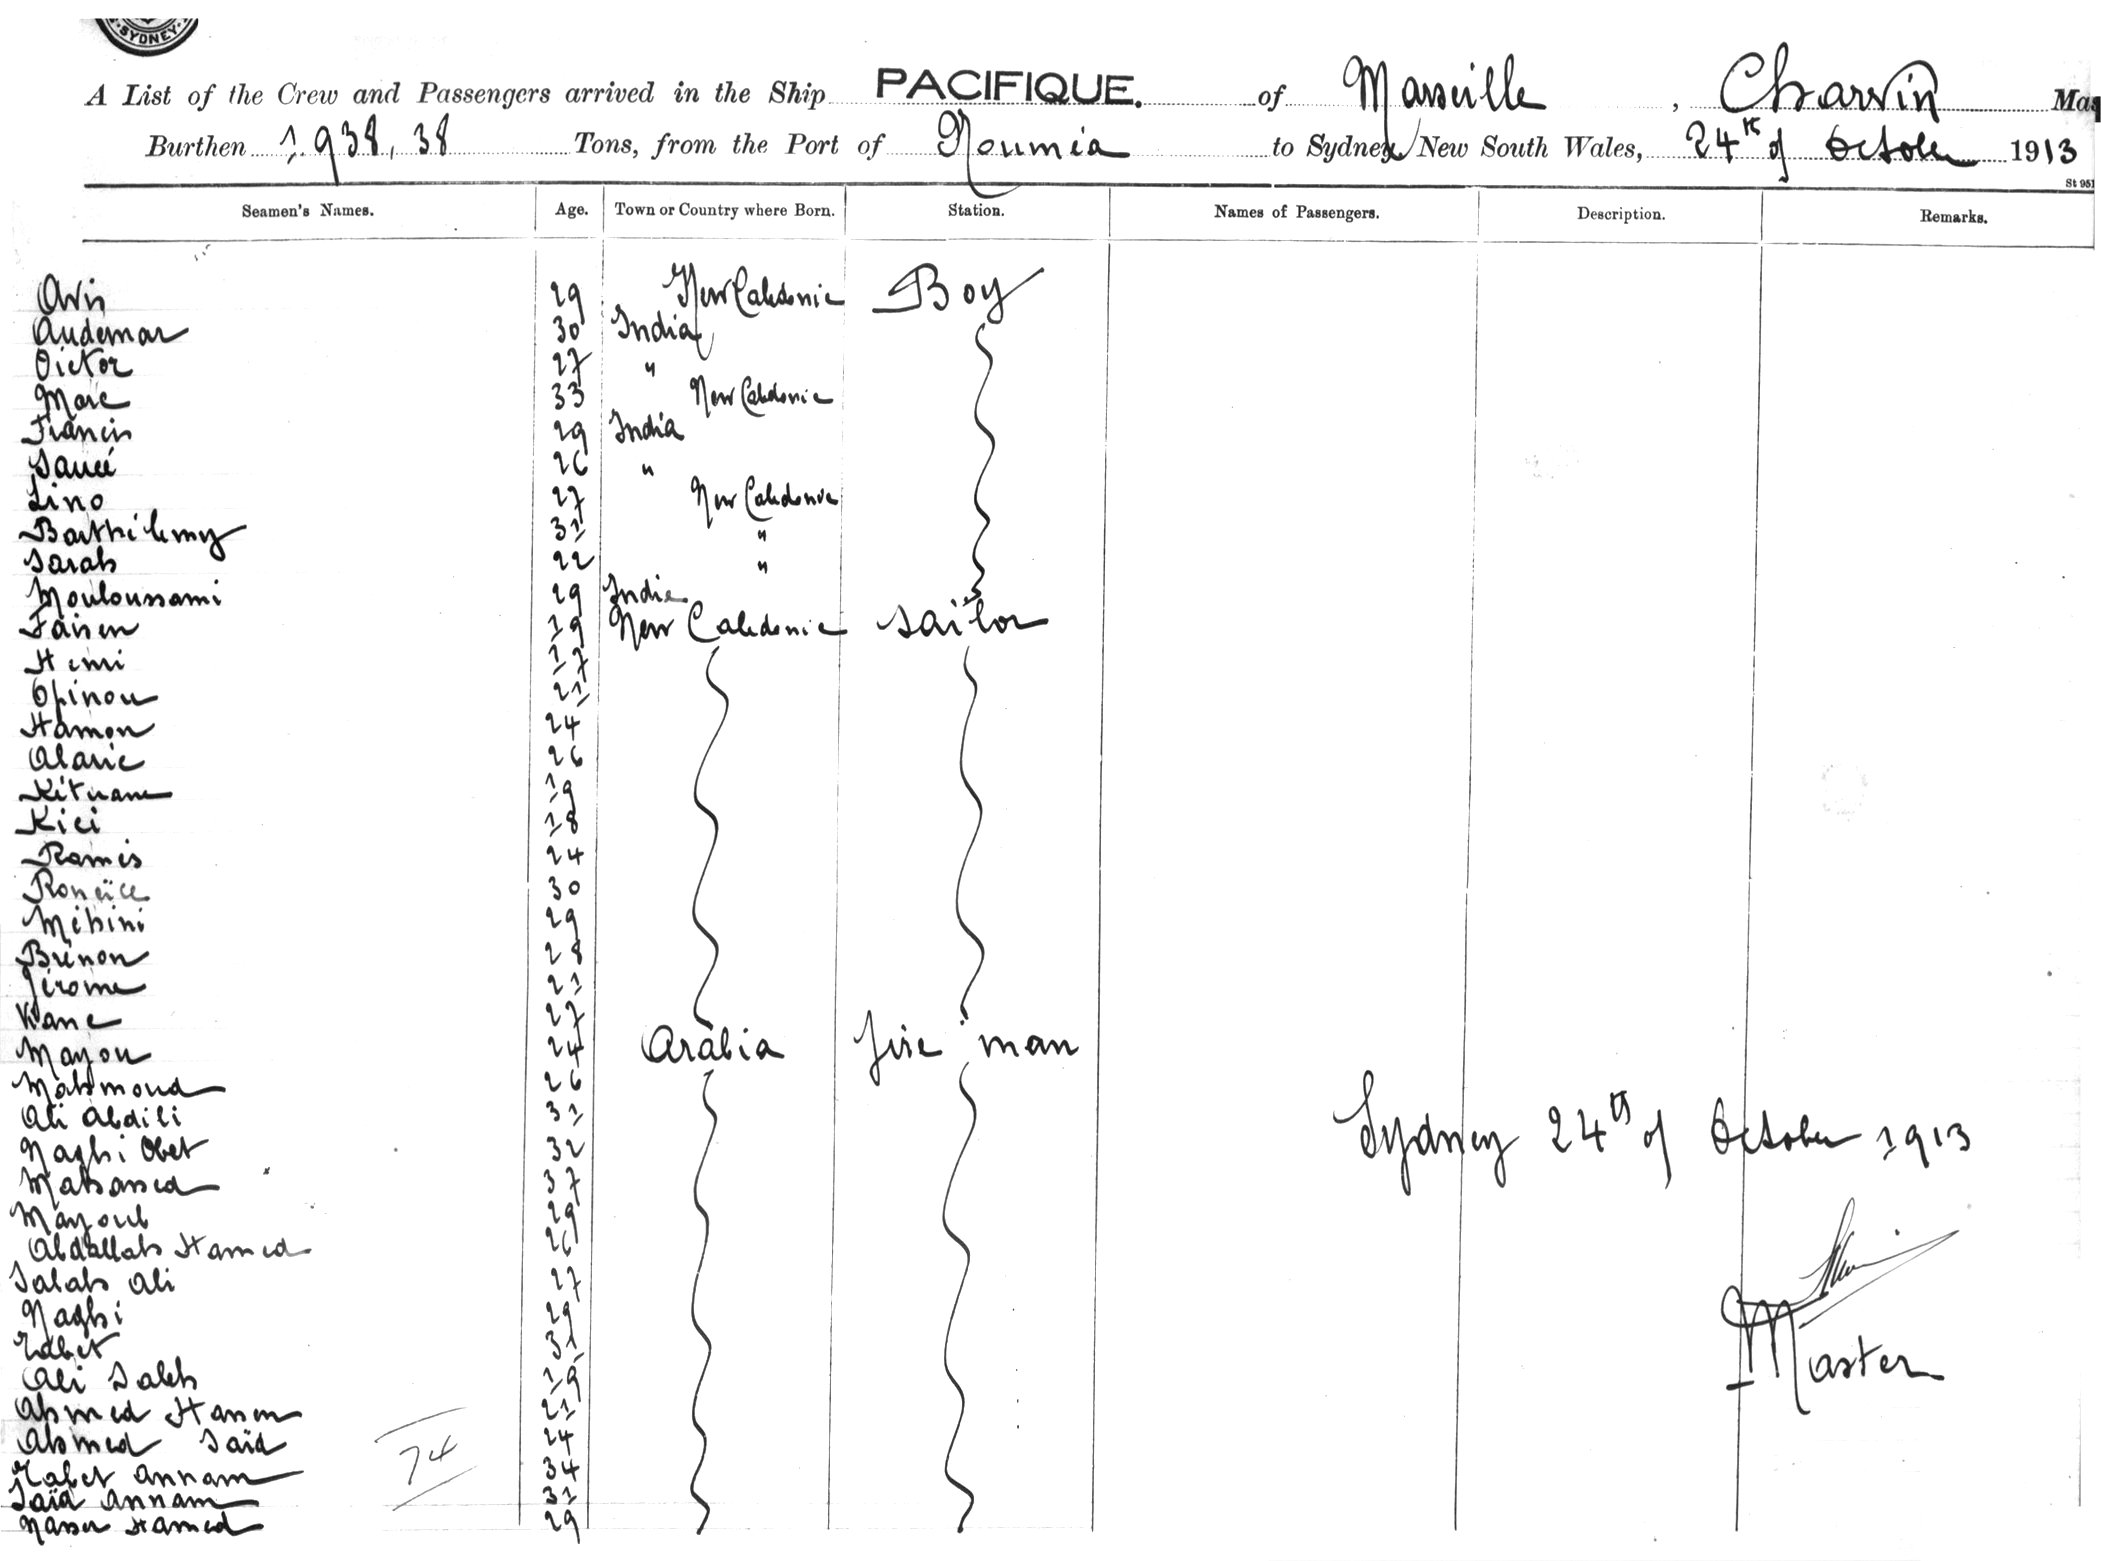 SYDNEY
A List of the Crew and Passengers arrived in the Ship PACIFIQUE. of Marseille, Charvin Mas
Burthen 1.938,38 Tons, from the Port of Noumia to Sydney New South Wales, 24th of October 1913
St 951
Seamen's Names. Age. Town or Country where Born. Station. Names of Passengers. Description. Remarks.
Avis 29 New Caledonie Boy
Audemar 30 India
Victor 27 "
Marc 33 New Caledonie
Francis 29 India
Saucé 26 "
Lino 27 New Caledonie
Barthélemy 31 "
Sarah 22 "
Mouloussami 29 Indie
Faisen 19 New Caledonie sailor
Himi 17
Opinou 21
Hamon 24
Alaric 26
Kituane 19
Kici 18
Ramés 24
Roneïce 30
Méhini 29
Brénon 28
Jérome 21
Kane 27
Mayou 24 Arabia fire man
Mahmoud 26
Ali Abdili 31
Naghi Obet 32
Mahamed 37
Mayoub 29
Abdallah Hamed 26
Salah Ali 27
Naghi 29
31
Ali Saleh 19
Ahmed Hasen 21
Ahmed Saïd 24
Annam 34
Saïd Annam 31
Nasser Hamed 29
74
Sydney 24th of October 1913
Master